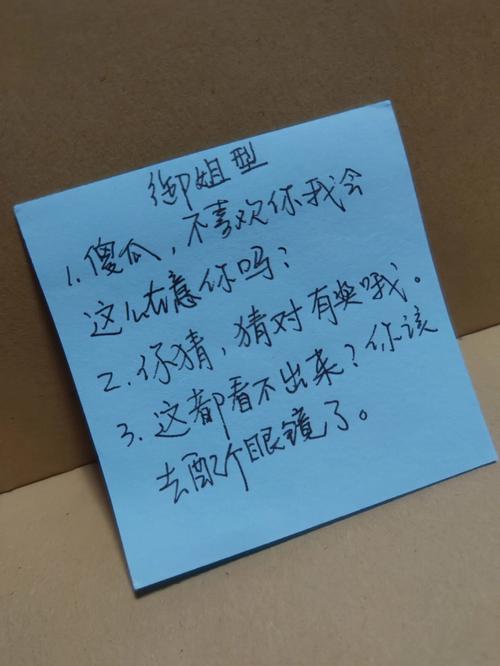 御姐型
1.傻瓜，不喜欢你我会
这么在意你吗？
2.你猜，猜对有奖哦。
3.这都看不出来？你该
去配个眼镜了。